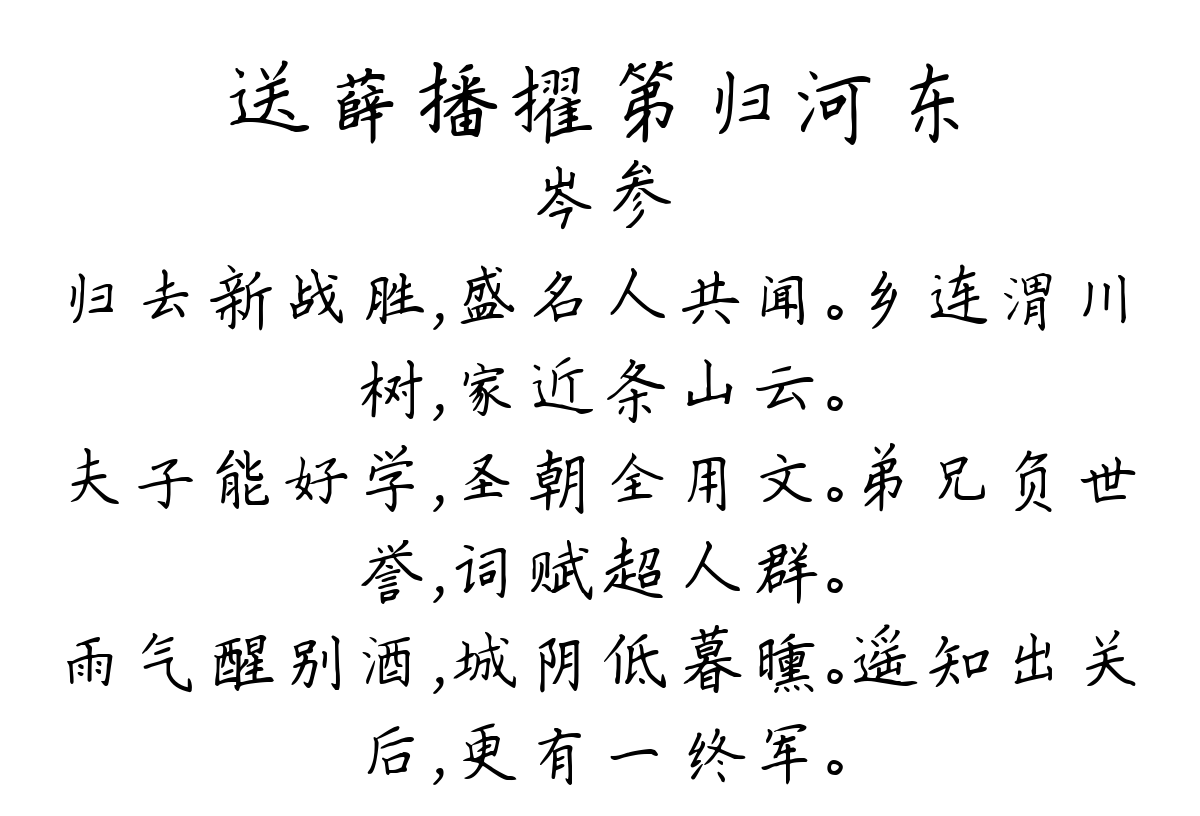 送薛播擢第归河东
岑参
归去新战胜,盛名人共闻。乡连渭川
树,家近条山云。
夫子能好学,圣朝全用文。弟兄负世
誉,词赋超人群。
雨气醒别酒,城阴低暮曛。遥知出关
后,更有一终军。